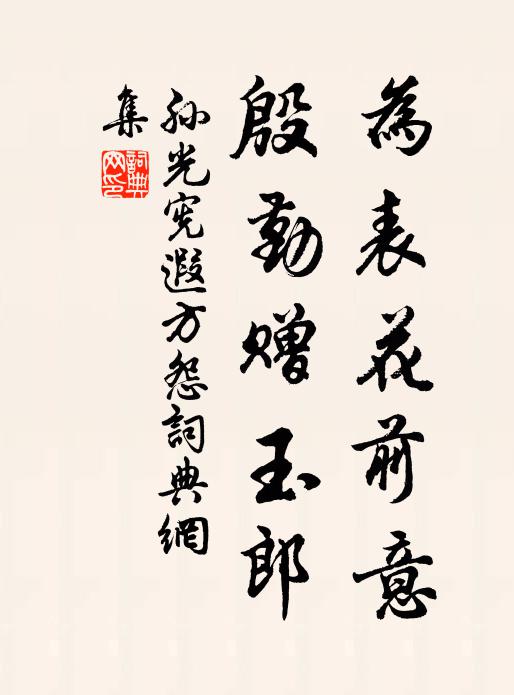 為表花前意
殷勤贈玉郎
孫光憲遐方怨詞典網
集
詞典
网印